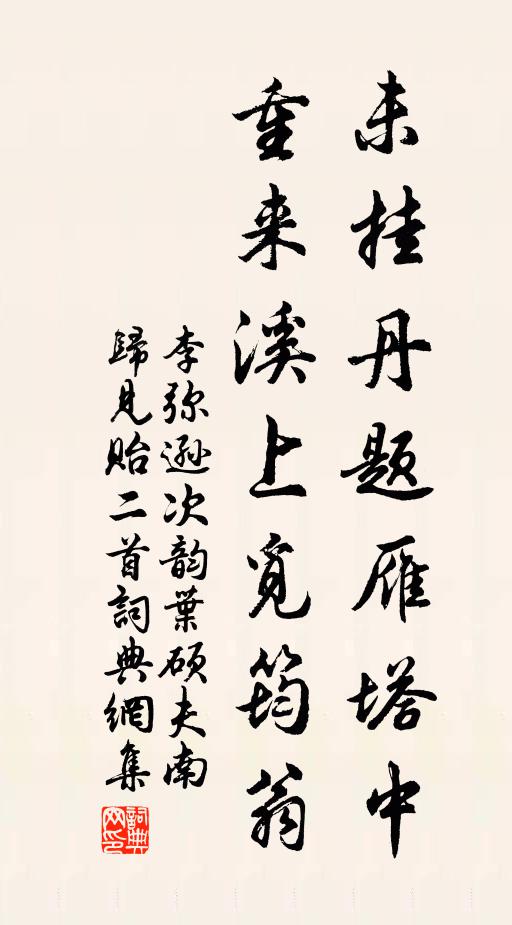 未挂丹题雁塔中
重来溪上觅筠翁
李弥逊次韵叶硕夫南
歸見貽二首詞典網集
詞典
网印